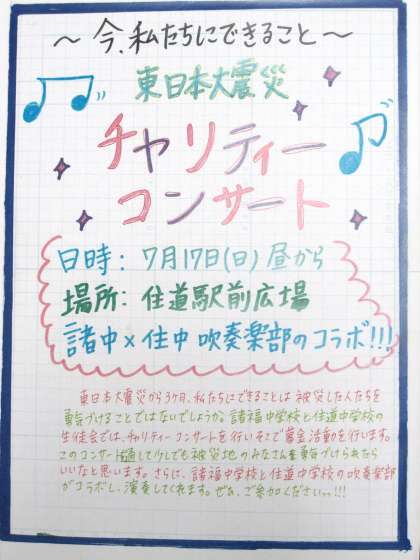 ～今、私たちにできること～
東日本大震災
チャリティー
コンサート
日時：7月17日(日)昼から
場所：住道駅前広場
諸中×住中 吹奏楽部のコラボ!!!
東日本大震災から3ヶ月、私たちにできることは被災した人たちを
勇気づけることではないでしょうか。諸福中学校と住道中学校の
生徒会では、チャリティーコンサートを行いそこで募金活動を行います。
このコンサートを通して少しでも被災地のみなさんを勇気づけられたら
いいなと思います。さらに、諸福中学校と住道中学校の吹奏楽部
がコラボし、演奏してくれます。ぜひ、ご参加ください!!!